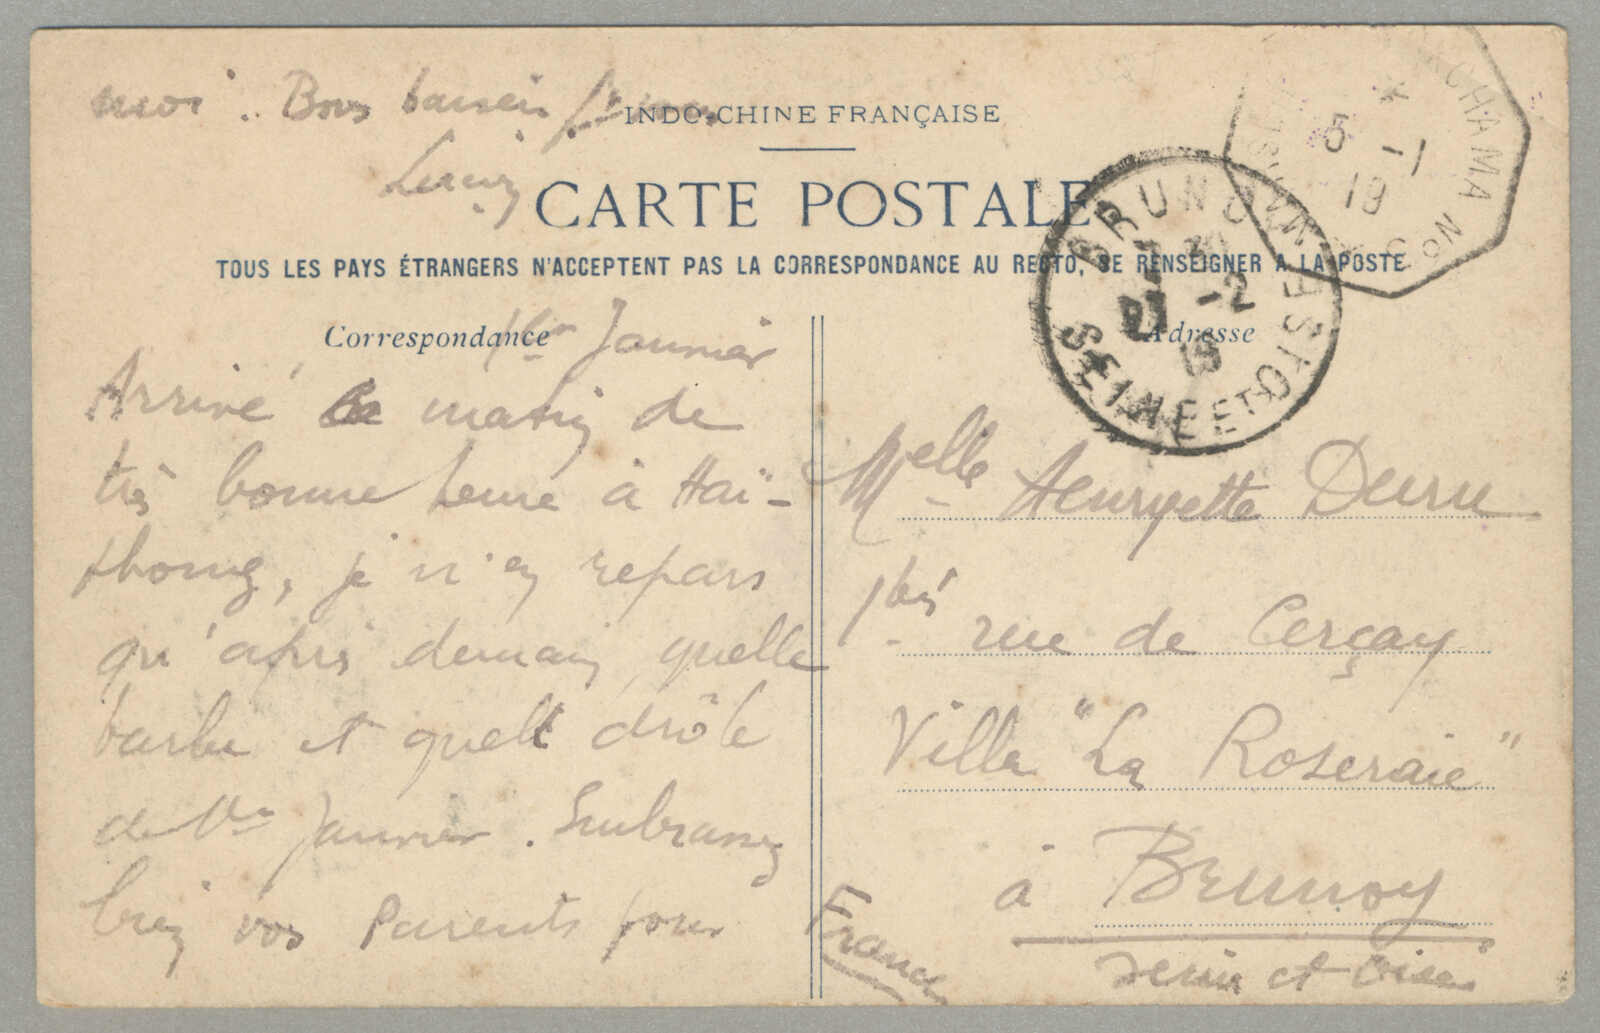 moi. Bons baisers
INDO-CHINE FRANÇAISE
CARTE POSTALE
TOUS LES PAYS ÉTRANGERS N'ACCEPTENT PAS LA CORRESPONDANCE AU RECTO, SE RENSEIGNER A LA POSTE
Correspondance
1er Janvier
Arrivé ce matin de
très bonne heure à Haï-
phong, je n'en repars
qu'après demain, quelle
barbe et quel drôle
de 1er Janvier. Embrassez
bien vos Parents pour
Adresse
Melle Henryette Duru
1bis rue de Cerçay
Villa "La Roseraie"
à Brunoy
Seine et Oise
France
BRUNOY
7 30
21 -2
13
SEINE ET OISE
5 -1
19